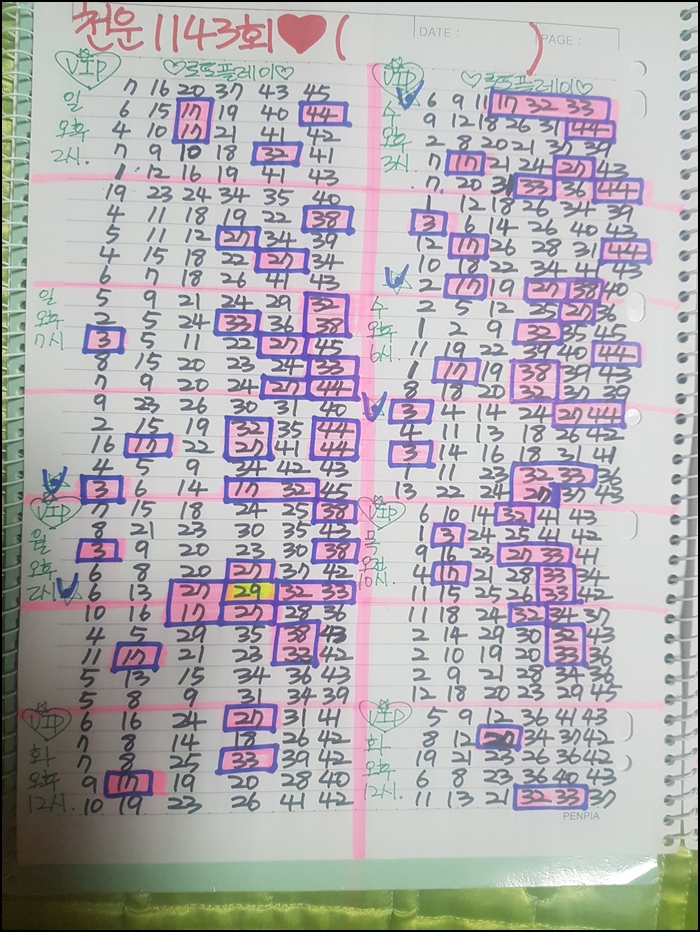 천운 1143회 ♥ (        )
DATE :
PAGE :
VIP ♡로또플레이♡
7 16 20 37 43 45
일 6 15 17 19 40 44
오후 4 10 17 21 41 42
2시. 7 9 10 18 32 41
1 12 16 19 41 43
19 23 24 34 35 40
4 11 18 19 22 38
5 11 12 27 34 39
4 15 18 22 27 34
6 7 18 26 41 43
일 5 9 21 24 29 32
오후 2 5 24 33 36 38
7시. 3 5 11 22 27 45
8 15 20 23 24 33
7 9 20 24 27 44
9 23 26 30 31 40
2 15 19 32 35 44
16 17 22 27 41 44
4 5 9 34 42 43
3 6 14 17 32 45
VIP 7 15 18 24 25 38
8 21 23 30 35 43
월 3 9 20 23 30 38
오후 6 8 20 27 37 42
2시. 6 13 27 29 32 33
10 16 17 27 28 36
4 5 29 35 38 43
11 17 21 23 33 42
5 13 15 34 36 43
5 8 9 31 34 39
VIP 6 16 24 27 31 41
7 8 14 18 26 42
화 7 8 25 33 39 42
오후 9 17 19 20 28 40
12시. 10 19 23 26 41 42
VIP ♡로또플레이♡
6 9 11 17 32 33
수 9 12 18 26 31 44
오후 2 8 20 21 37 39
3시. 7 17 21 24 27 43
7 20 31 33 36 44
1 12 18 26 34 39
3 6 14 26 40 43
12 17 26 28 31 44
10 18 22 34 41 43
2 17 19 27 38 40
수 2 5 12 25 27 36
오후 1 2 9 32 35 45
6시. 11 19 22 39 40 44
1 17 19 38 39 43
8 18 20 32 37 39
3 4 14 24 27 44
4 11 13 18 26 42
3 14 16 18 31 41
1 11 23 32 33 36
13 22 24 27 37 43
VIP 6 10 14 32 41 43
1 3 24 25 41 42
목 9 16 23 27 33 41
오전 4 17 21 28 33 34
10시. 11 15 25 26 33 42
11 18 24 32 34 37
2 14 29 30 32 43
2 10 19 20 33 36
2 9 21 28 34 36
12 18 20 23 29 45
VIP 5 9 12 36 41 43
8 12 34 37 42
화 19 21 23 26 36 42
오후 6 8 23 36 40 43
12시. 11 13 21 32 33 37
PENPIA